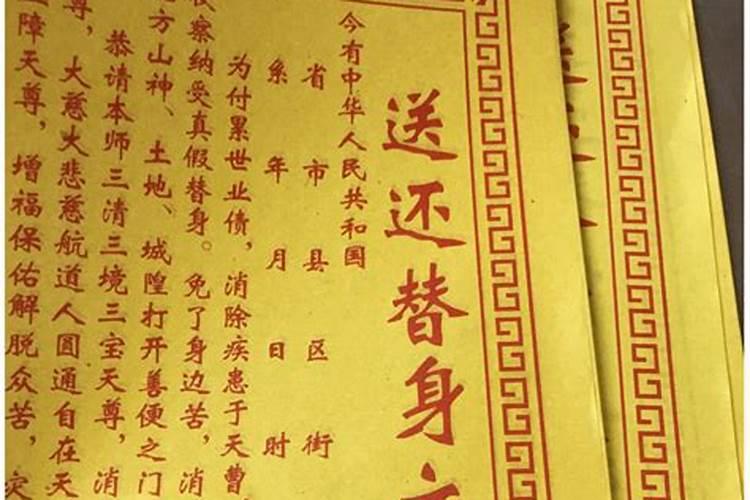 送还替身
今有中华人民共和国
省市县区街
系年月日时
为付累世业债,消除疾患于天曹
察纳受真假替身。免了身边苦,消
方山神、土地、城隍打开善便之门
恭请本师三清三境三宝天尊,消
尊,大慈大悲慈航道人圆通自在天
障天尊,增福保佑解脱众苦,灾